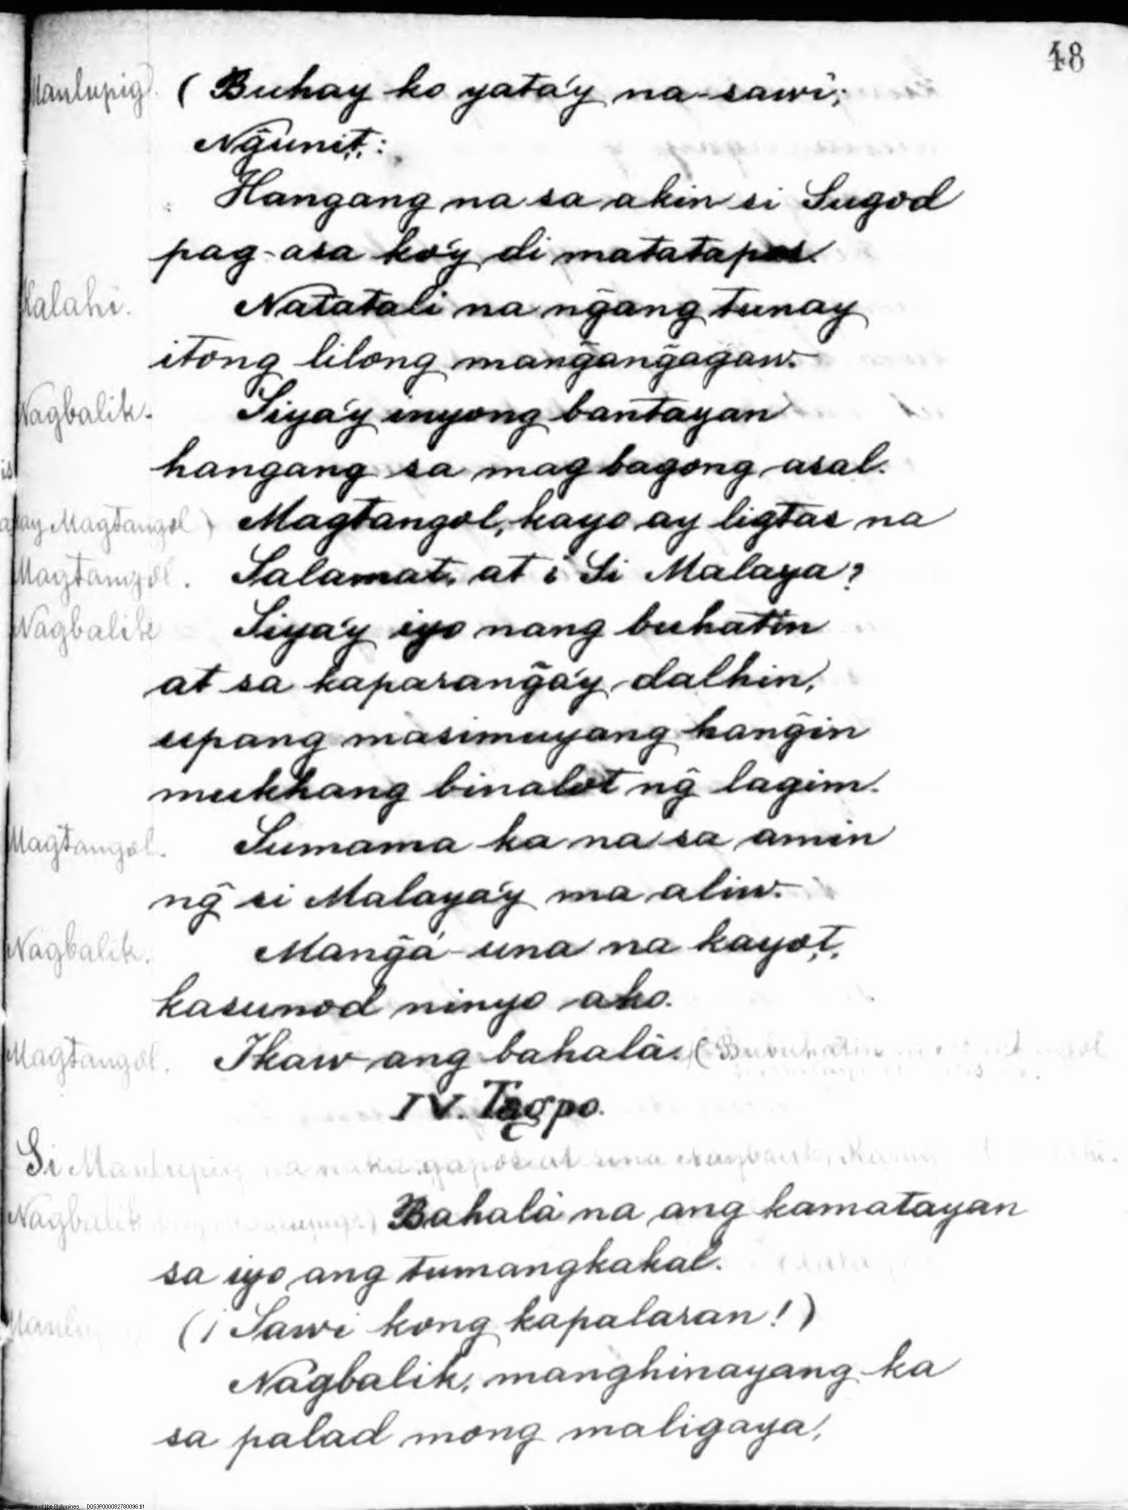 48
Manlupig. ( Buhay ko yata'y na-sawi;
Ng̃unit;:
Hangang na sa akin si Sugod
pag-asa ko'y di matatapos.
Kalahi. Natatali na ng̃ang tunay
itong lilong mang̃ang̃agaw.
Nagbalik. Siya'y inyong bantayan
hangang sa mag bagong asal.
ay Magtangol ) Magtangol, kayo ay ligtas na
Magtangol. Salamat, at ¿ Si Malaya?
Nagbalik Siya'y iyo nang buhatin
at sa kaparang̃a'y dalhin,
upang masimuyang hang̃in
mukhang binalot ng̃ lagim.
Magtangol. Sumama ka na sa amin
ng̃ si Malaya'y ma aliw.
Nagbalik. Mang̃á-una na kayot,
kasunod ninyo ako.
Magtangol. Ikaw ang bahalà. ( Bubuhatin
IV. Tagpo.
Si Manlupig na naka gapos at sina Nagbalik,
Nagbalik Bahalà na ang kamatayan
sa iyo ang tumangkakal.
(¡ Sawi kong kapalaran!)
Nagbalik, manghinayang ka
sa palad mong maligaya,